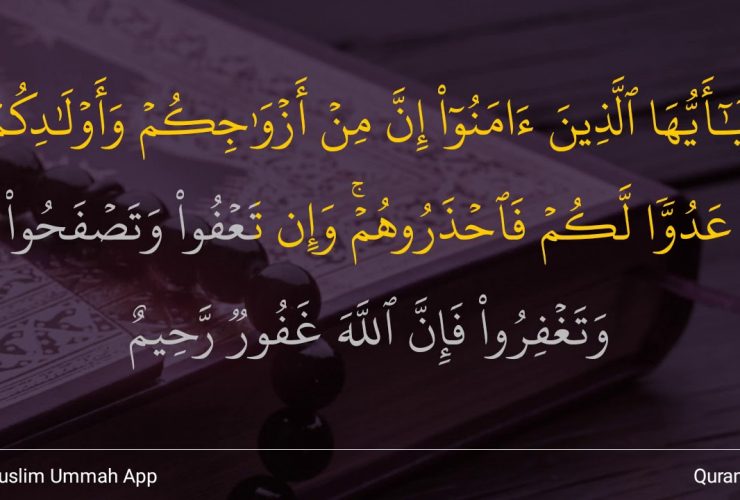 يَـٰٓأَيُّهَا ٱلَّذِينَ ءَامَنُوٓا۟ إِنَّ مِنْ أَزْوَٰجِكُمْ وَأَوْلَـٰدِكُمْ
عَدُوًّا لَّكُمْ فَٱحْذَرُوهُمْ ۚ وَإِن تَعْفُوا۟ وَتَصْفَحُوا۟
وَتَغْفِرُوا۟ فَإِنَّ ٱللَّهَ غَفُورٌ رَّحِيمٌ
uslim Ummah App Quran